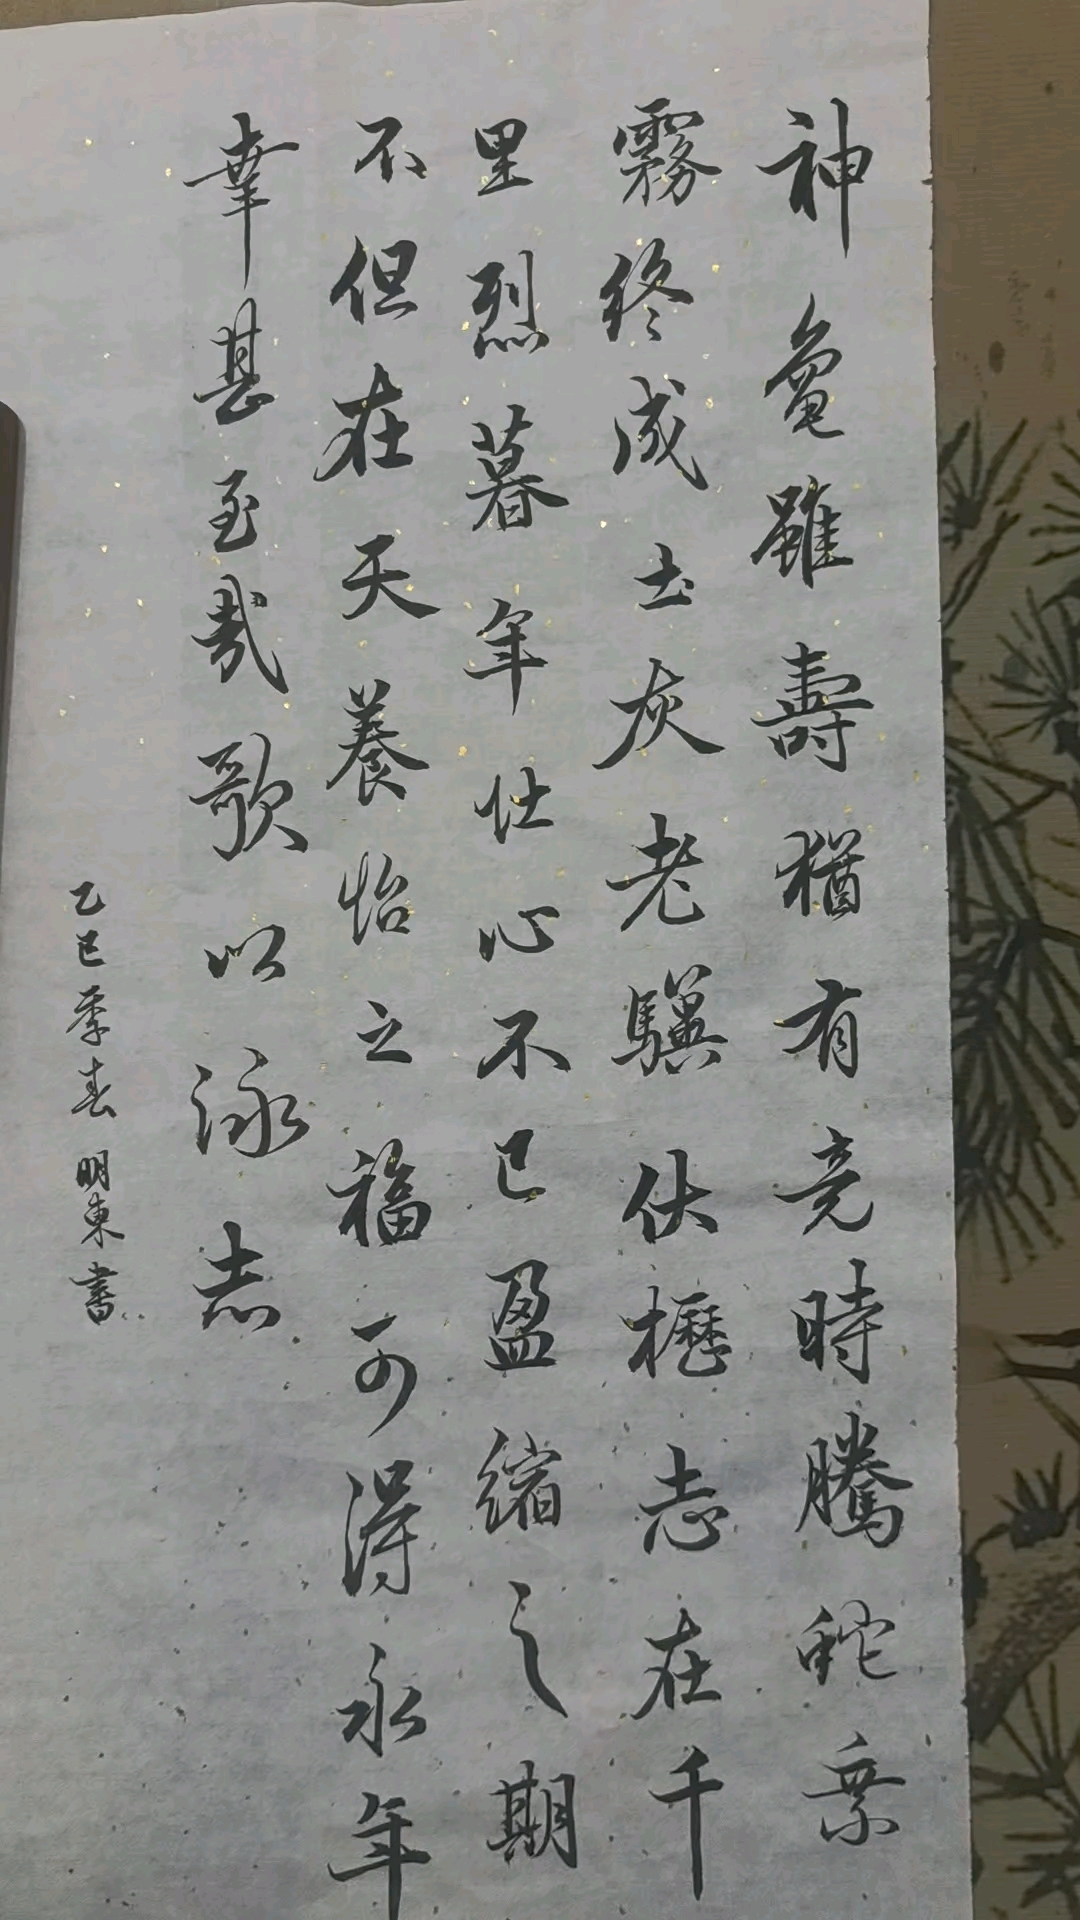 神龜雖壽猶有竞時騰蛇乗
霧終成土灰老驥伏櫪志在千
里烈暮年壮心不已盈縮之期
不但在天養怡之福可得永年
幸甚至哉歌以詠志
乙巳季春明東書